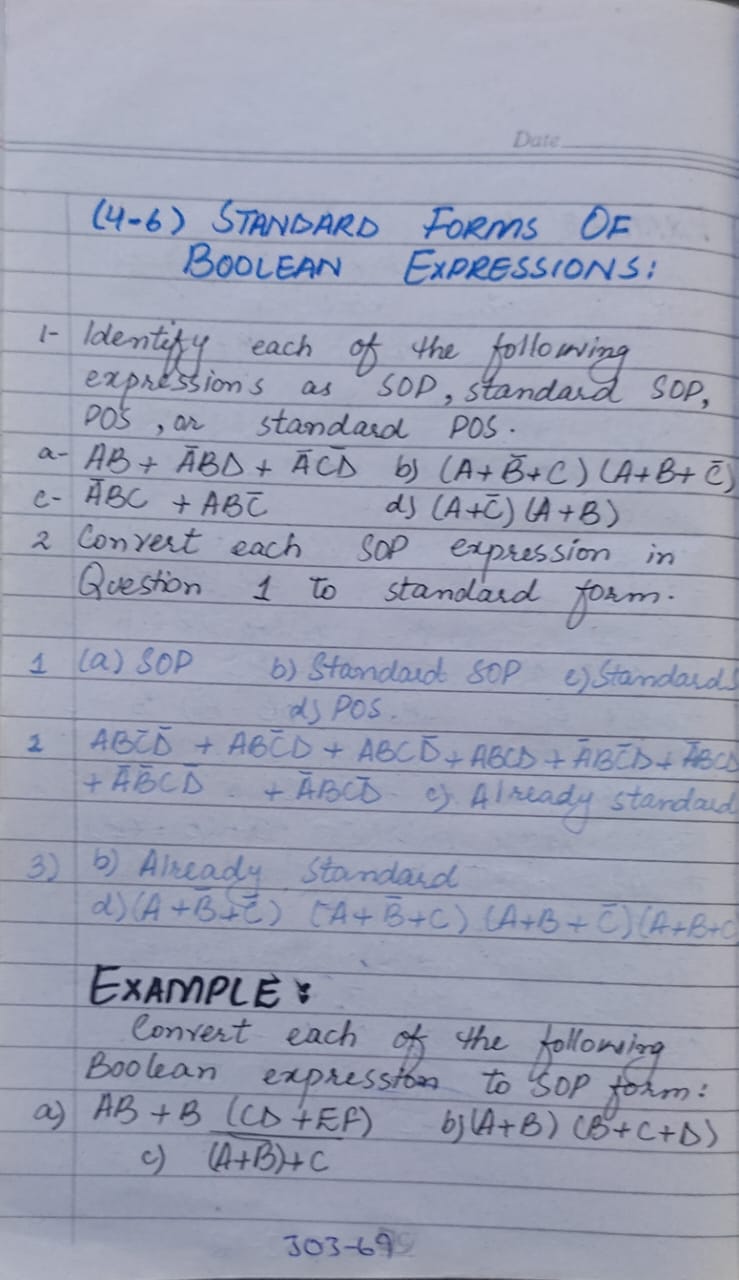 Date
(4-6) STANDARD FORMS OF
BOOLEAN EXPRESSIONS:
1- Identify each of the following
expressions as SOP, standard SOP,
POS, or standard POS.
a- AB + ĀBD + ĀCD̄ b) (A+B̄+C) (A+B+C̄)
c- ĀBC + ABC̄ d) (A+C̄) (A+B)
2 Convert each SOP expression in
Question 1 to standard form.
1 (a) SOP b) Standard SOP c) Standard S
d) POS.
2 ABC̄D̄ + ABC̄D + ABCD̄ + ABCD + ĀBC̄D + ĀBCD
+ ĀB̄CD̄ + ĀBCD̄ c) Already standard
3) b) Already Standard
d) (A+B̄+C̄) (A+B̄+C) (A+B+C̄) (A+B+C
EXAMPLE:
Convert each of the following
Boolean expression to SOP form:
a) AB + B (CD+EF) b) (A+B) (B+C+D)
c) (A+B)+C
303-69